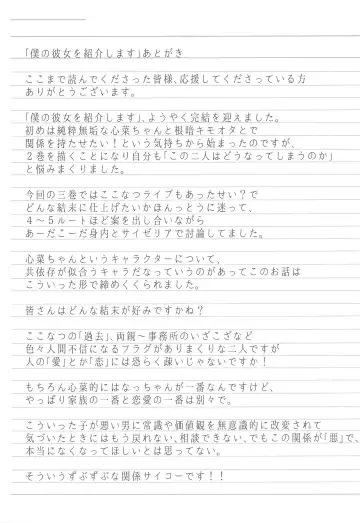 「僕の彼女を紹介します」あとがき
ここまで読んでくださった皆様、応援してくださっている方
ありがとうございます。
「僕の彼女を紹介します」、ようやく完結を迎えました。
初めは純粋無垢な心菜ちゃんと根暗キモオタとで
関係を持たせたい！という気持ちから始まったのですが、
２巻を描くことになり自分も「この二人はどうなってしまうのか」
と悩みまくりました。
今回の三巻ではここなつライブもあったせい？で
どんな結末に仕上げたいかほんっとうに迷って、
４〜５ルートほど案を出し合いながら
あーだこーだ身内とサイゼリアで討論してました。
心菜ちゃんというキャラクターについて、
共依存が似合うキャラだなっていうのがあってこのお話は
こういった形で締めくくられました。
皆さんはどんな結末が好みですかね？
ここなつの「過去」、両親〜事務所のいざこざなど
色々人間不信になるフラグがありまくりな二人ですが
人の「愛」とか「恋」には恐らく疎いじゃないですか！
もちろん心菜的にはなっちゃんが一番なんですけど、
やっぱり家族の一番と恋愛の一番は別々で。
こういった子が悪い男に常識や価値観を無意識的に改変されて
気づいたときにはもう戻れない、相談できない、でもこの関係が「悪」で、
本当になくなってほしいとは思ってない。
そういうずぶずぶな関係サイコーです！！